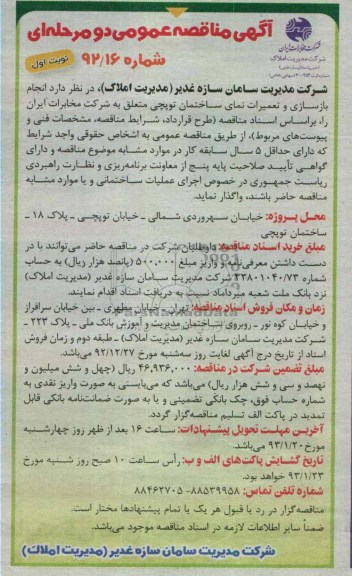 آگهی مناقصه عمومی دو مرحله‌ای
شماره ۹۲/۱۶
نوبت اول
شرکت مخابرات ایران
شرکت مدیریت املاک
شرکت مدیریت سامان سازه غدیر (مدیریت املاک)، در نظر دارد انجام
بازسازی و تعمیرات نمای ساختمان توپچی متعلق به شرکت مخابرات ایران
را، براساس اسناد مناقصه (طرح قرارداد، شرایط مناقصه، مشخصات فنی و
پیوست‌های مربوط)، از طریق مناقصه عمومی به اشخاص حقوقی واجد شرایط
که دارای حداقل ۵ سال سابقه کار در موارد مشابه موضوع مناقصه و دارای
گواهی تأیید صلاحیت پایه پنج از معاونت برنامه‌ریزی و نظارت راهبردی
ریاست جمهوری در خصوص اجرای عملیات ساختمانی و یا موارد مشابه
مناقصه حاضر باشند، واگذار نماید.
محل پروژه: خیابان سهروردی شمالی ـ خیابان توپچی ـ پلاک ۱۸ ـ
ساختمان توپچی
مبلغ خرید اسناد مناقصه: داوطلبان شرکت در مناقصه حاضر می‌توانند با در
دست داشتن معرفی‌نامه و واریز مبلغ ۵۰۰,۰۰۰ ریال (پانصد هزار ریال) به حساب
شماره ۲۳۸۰۱۰۴۰/۷۳ شرکت مدیریت سامان سازه غدیر (مدیریت املاک)
نزد بانک ملت شعبه میرداماد نسبت به دریافت اسناد اقدام نمایند.
زمان و مکان فروش اسناد مناقصه: تهران ـ خیابان مطهری ـ بین خیابان سرافراز
و خیابان کوه نور ـ روبروی ساختمان مدیریت و آموزش بانک ملی ـ پلاک ۲۲۳ ـ
شرکت مدیریت سامان سازه غدیر (مدیریت املاک) ـ طبقه دوم و زمان فروش
اسناد از تاریخ درج آگهی لغایت روز سه‌شنبه مورخ ۹۲/۱۲/۲۷ می‌باشد.
مبلغ تضمین شرکت در مناقصه: ۴۶,۹۳۶,۰۰۰ ریال (چهل و شش میلیون و
نهصد و سی و شش هزار ریال) می‌باشد که می‌بایستی به صورت واریز نقدی به
شماره حساب فوق، چک بانکی تضمینی و یا به صورت ضمانت‌نامه بانکی قابل
تمدید در پاکت الف تسلیم مناقصه‌گزار گردد.
آخرین مهلت تحویل پیشنهادات: ساعت ۱۶ بعد از ظهر روز چهارشنبه
مورخ ۹۳/۱/۲۰ می‌باشد.
تاریخ گشایش پاکت‌های الف و ب: رأس ساعت ۱۰ صبح روز شنبه مورخ
۹۳/۱/۲۳ خواهد بود.
شماره تلفن تماس: ۸۸۵۳۹۹۵۸ - ۸۸۴۶۲۷۰۵
مناقصه‌گزار در رد یا قبول هر یک یا تمام پیشنهادها مختار است.
ضمناً سایر اطلاعات لازمه در اسناد مناقصه موجود می‌باشد.
شرکت مدیریت سامان سازه غدیر (مدیریت املاک)